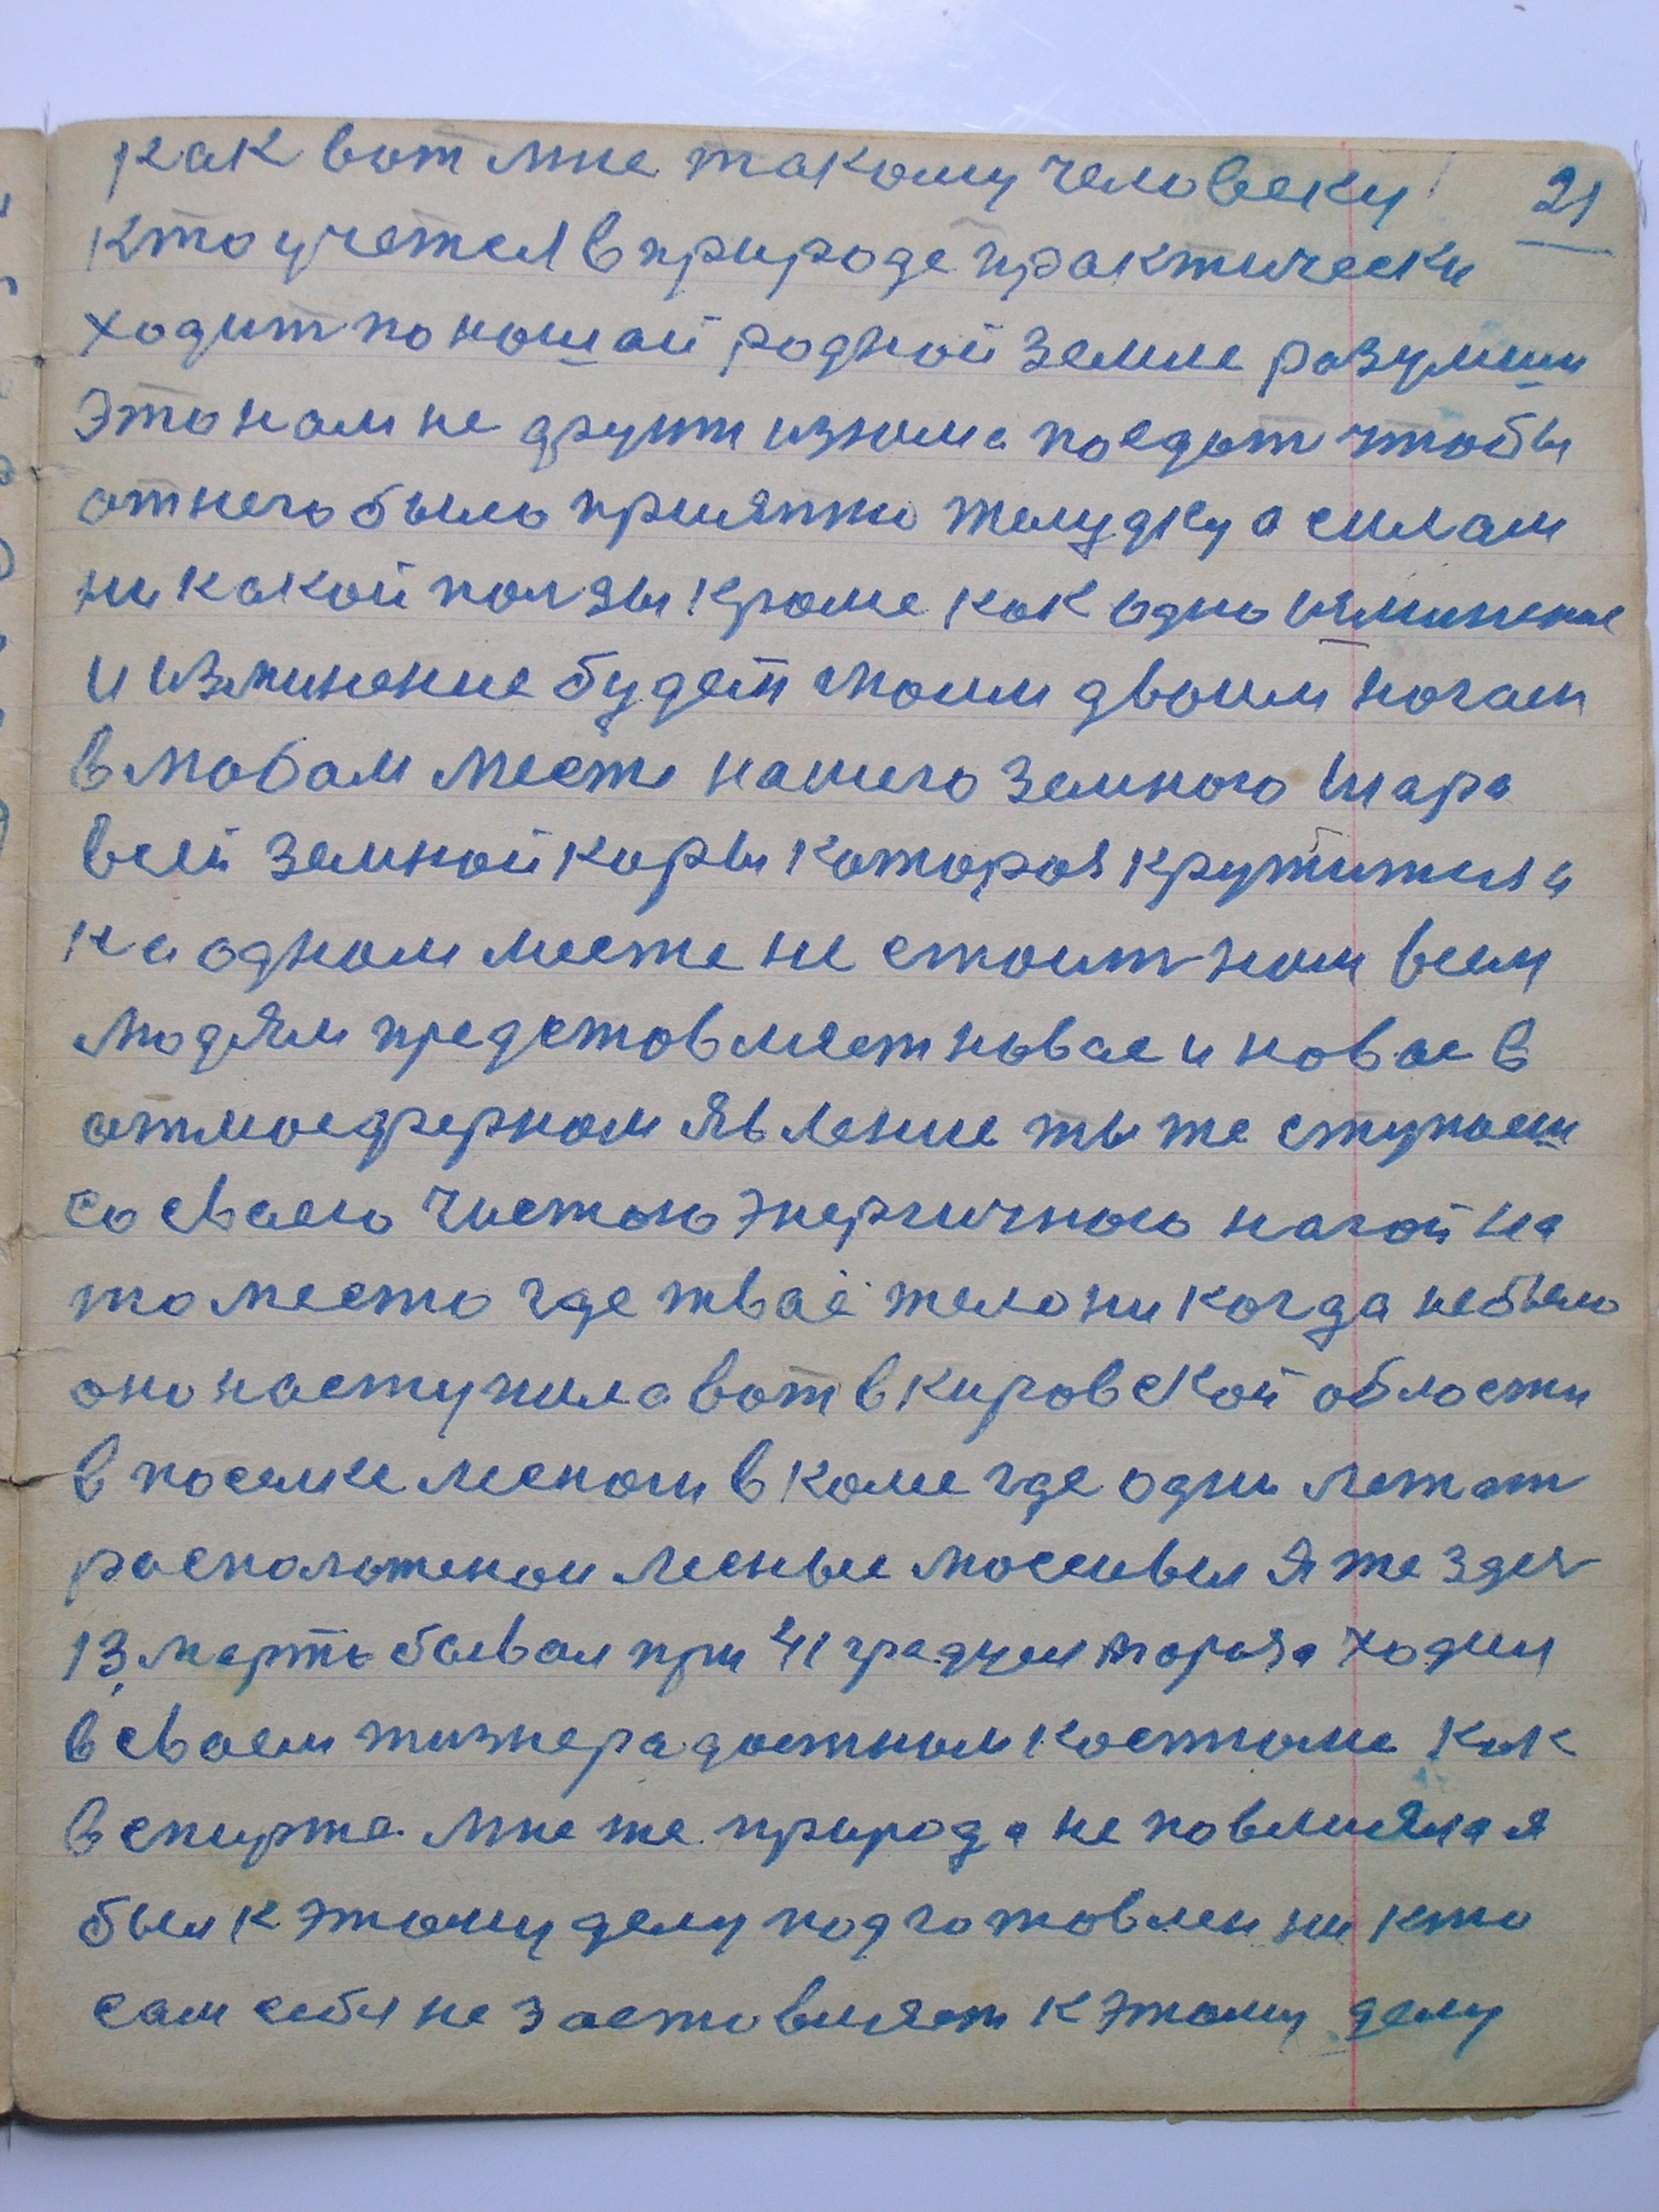 как вот мне такому человеку 21
кто учется в природе практически
ходит по нашай родной земле разумии
это нам не друпт изюма поедат чтобы
от него было приятно желудку а силам
ни какой ползы кроме как одно изминение
и изминение будет моим двоим ногам
в любам месте нашего земного шара
всей земной коры которая крутится и
на одном месте не стоит нам всем
людям предстовляет новае и новае в
атмосферном явление ты же ступаеш
со сваею чистою энергичною нагой на
то место где тваё тело ни когда не было
оно наступила вот в кировской области
в поселке лесном в коме где одни лежат
расположеном лесные массивы я же здесь
13 марта бывал при 41 градусе мороза ходил
в сваем жизнерадостном костюме как
в спирте мне же природа не повлияла я
был к этому делу подготовлен ни кто
сам себя не застовляет к этому делу